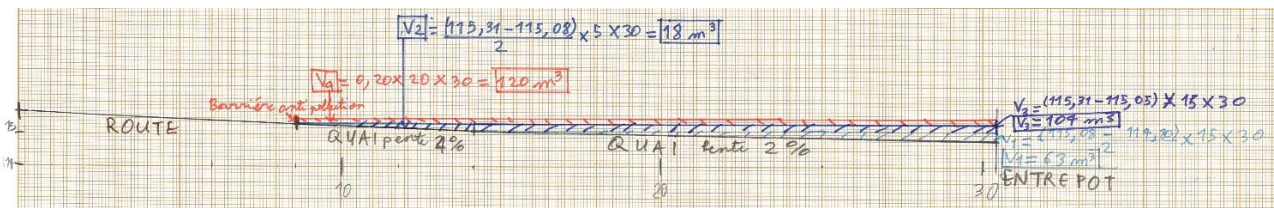 V2 = (115,31-115,08) x 5 x 30 = 18 m³
2
Vq = 0,20 x 20 x 30 = 120 m³
Barrière anti pollution
ROUTE
QUAI pente 4%
QUAI pente 2%
V3 = (115,31-115,05) x 15 x 30
V3 = 104 m³
x 15 x 30
V1 = 63 m³
2
ENTREPOT
10
20
30